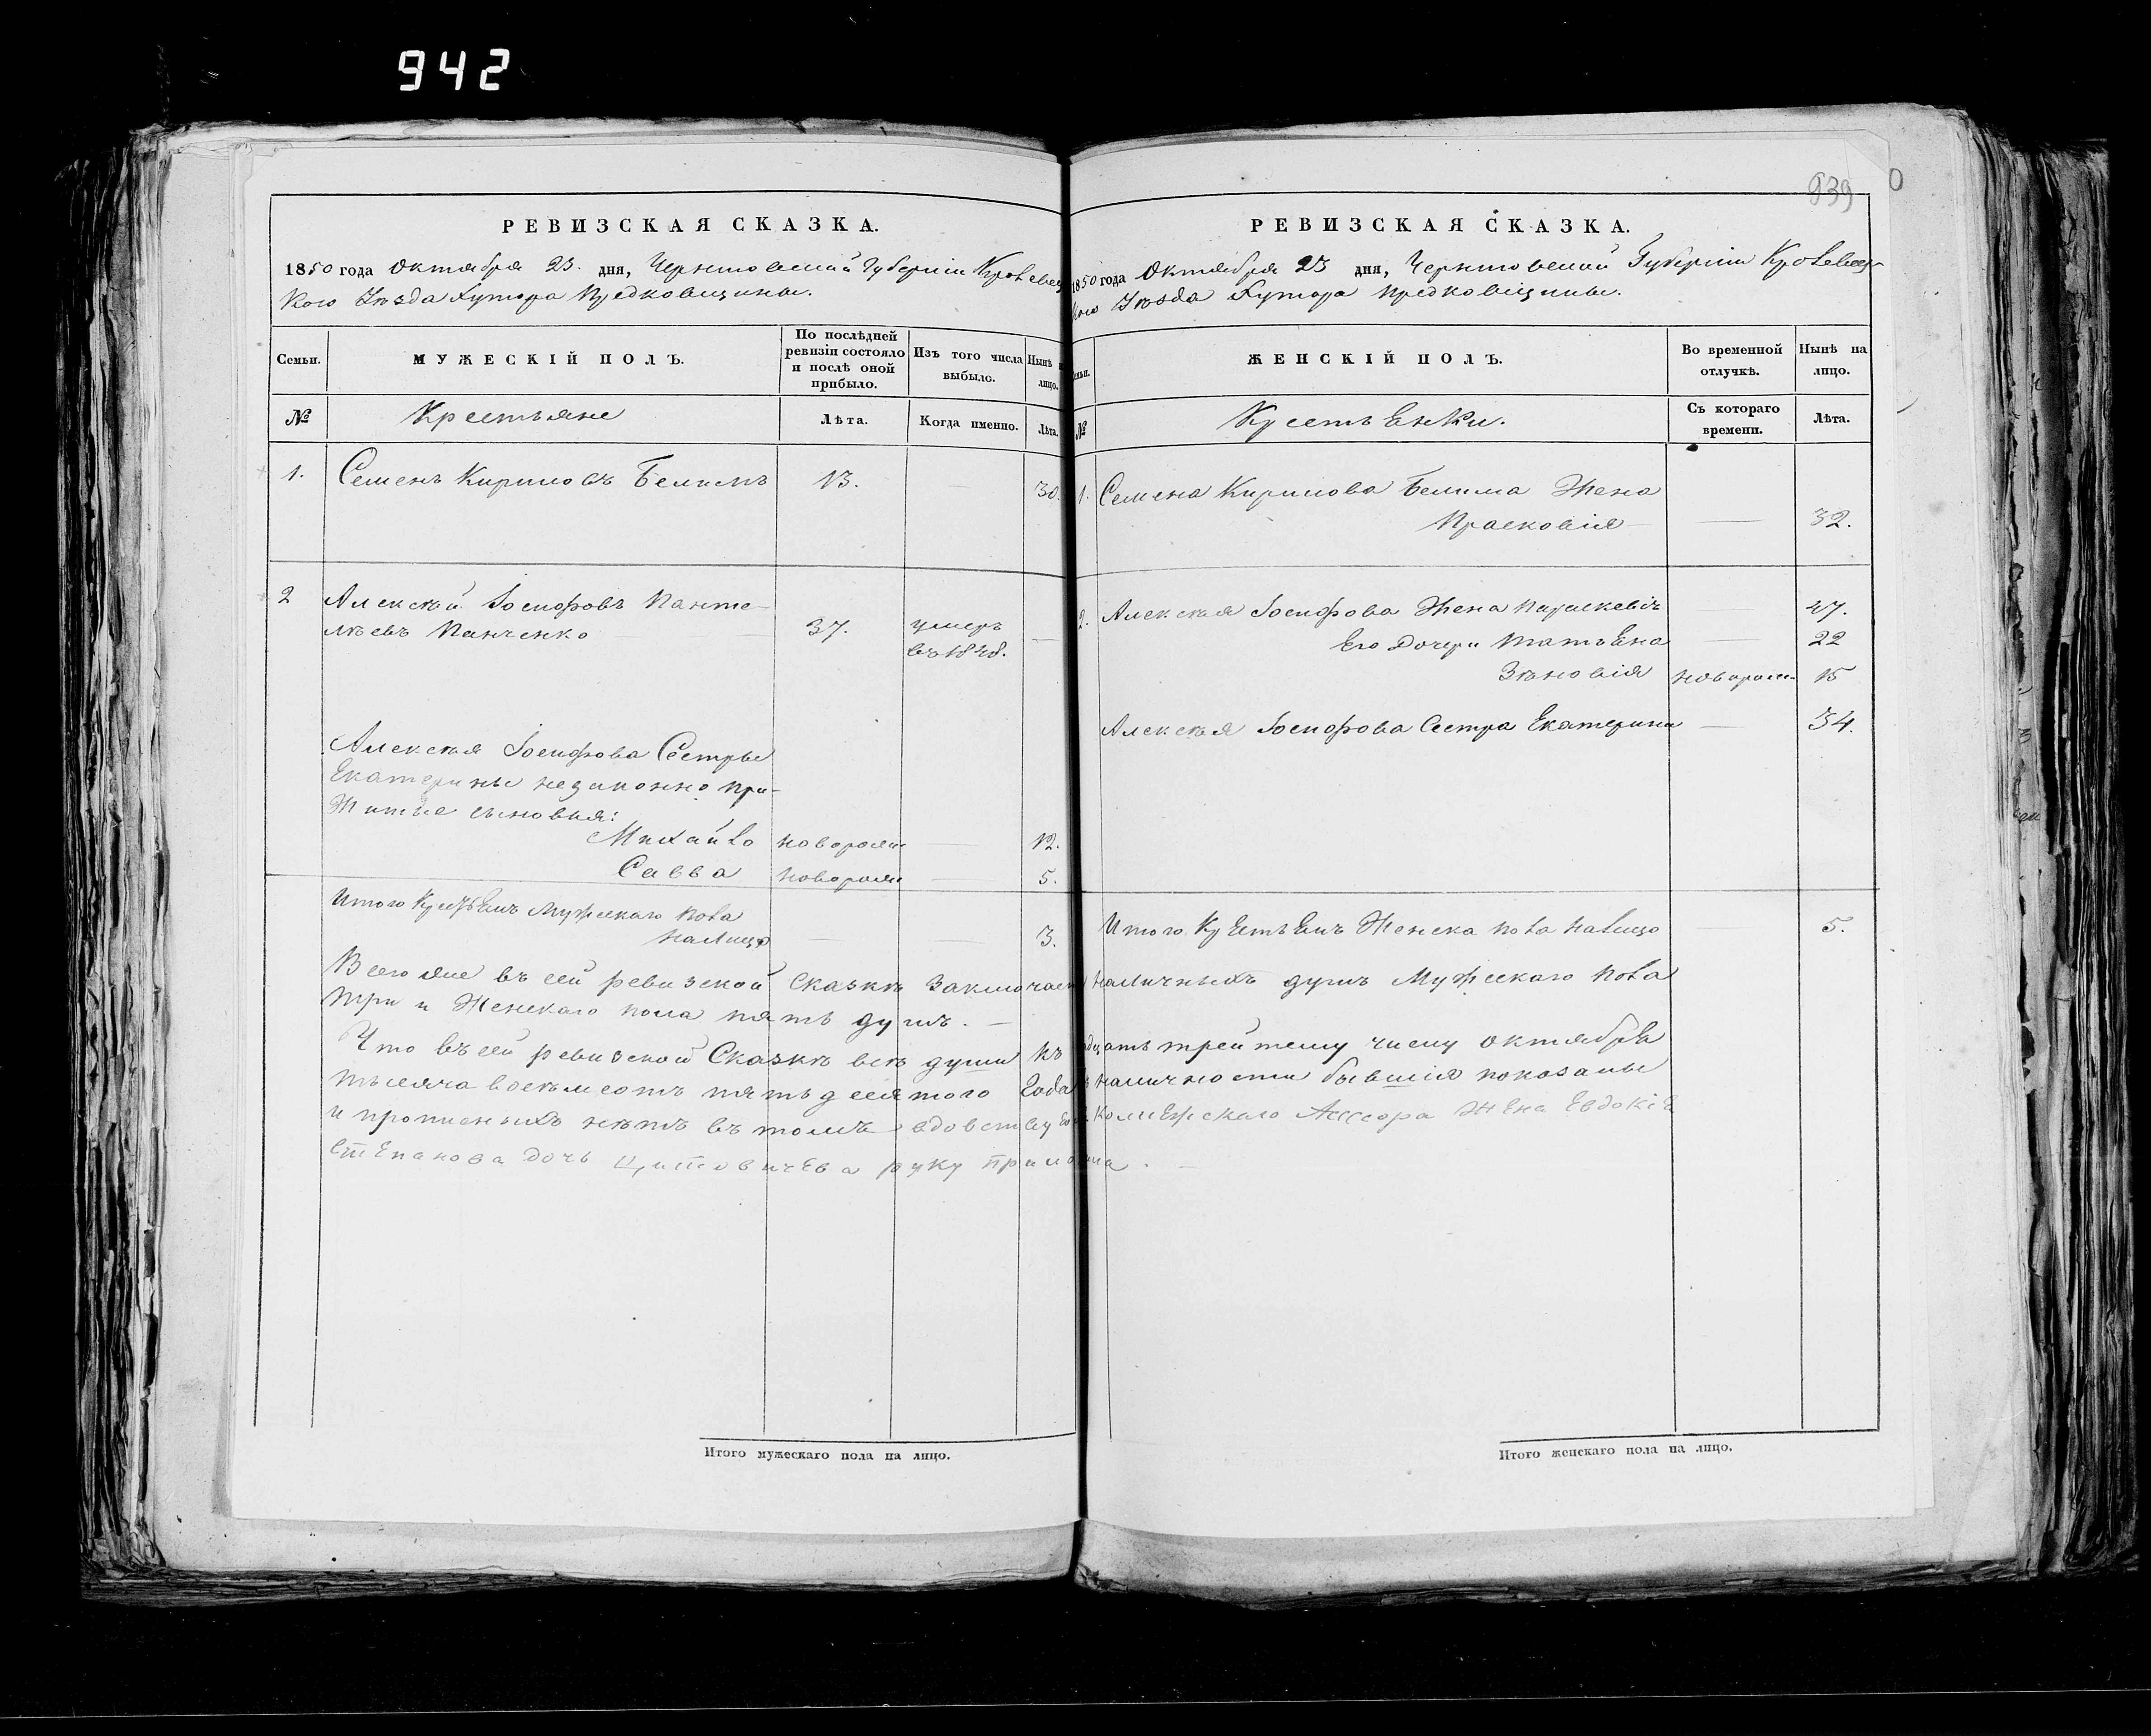 942
939
РЕВИЗСКАЯ СКАЗКА.
1850 года Октября 23. дня, Черниговской Губерніи Кролевец
кого Уѣзда Хутора Предковщины.
Семьи.
МУЖЕСКІЙ ПОЛЪ.
По послѣдней ревизіи состояло и послѣ оной прибыло.
Изъ того числа выбыло.
Нынѣ на лицо.
№
Крестьяне
Лѣта.
Когда именно.
Лѣта.
1. Семенъ Кириловъ Белимъ 13. — 30.
2 Алексѣй Іосифовъ Панте-
лѣевъ Панченко 37. умеръ —
въ 1848.
Алексѣя Іосифова Сестры
Екатерины незаконно при-
житые сыновья:
Михайло новорожд — 12.
Савва новорожд — 5.
Итого Крестьянъ Мужескаго пола
налицо — 3.
РЕВИЗСКАЯ СКАЗКА.
1850 года Октября 23 дня, Черниговской Губерніи Кролевец
кого Уѣзда Хутора Предковщины.
Семьи.
ЖЕНСКІЙ ПОЛЪ.
Во временной отлучкѣ.
Нынѣ на лицо.
№
Крестьенки.
Съ котораго времени.
Лѣта.
1. Семена Кирилова Белима Жена
Прасковія — 32.
2. Алексѣя Іосифова Жена Параскевія 47.
Его Дочери Татьена — 22
Зѣновія новорожд 15
Алексѣя Іосифова Сестра Екатерина — 34.
Итого Крестьенъ Женска пола налицо — 5.
Всего же въ сей ревизской Сказкѣ заключает наличныхъ душъ Мужескаго пола
три и Женскаго пола пять душъ. —
Что въ сей ревизской Сказкѣ всѣ души къ дцать трейтему числу октября
тысяча восемьсотъ пятьдесятого Года наличности бывшія показаны
и прописныхъ нѣтъ въ томъ вдовствую Колежскаго Ассесора Жена Евдокіе
Степанова дочь Цитовичева руку приложила. —
Итого мужескаго пола на лицо.
Итого женскаго пола на лицо.